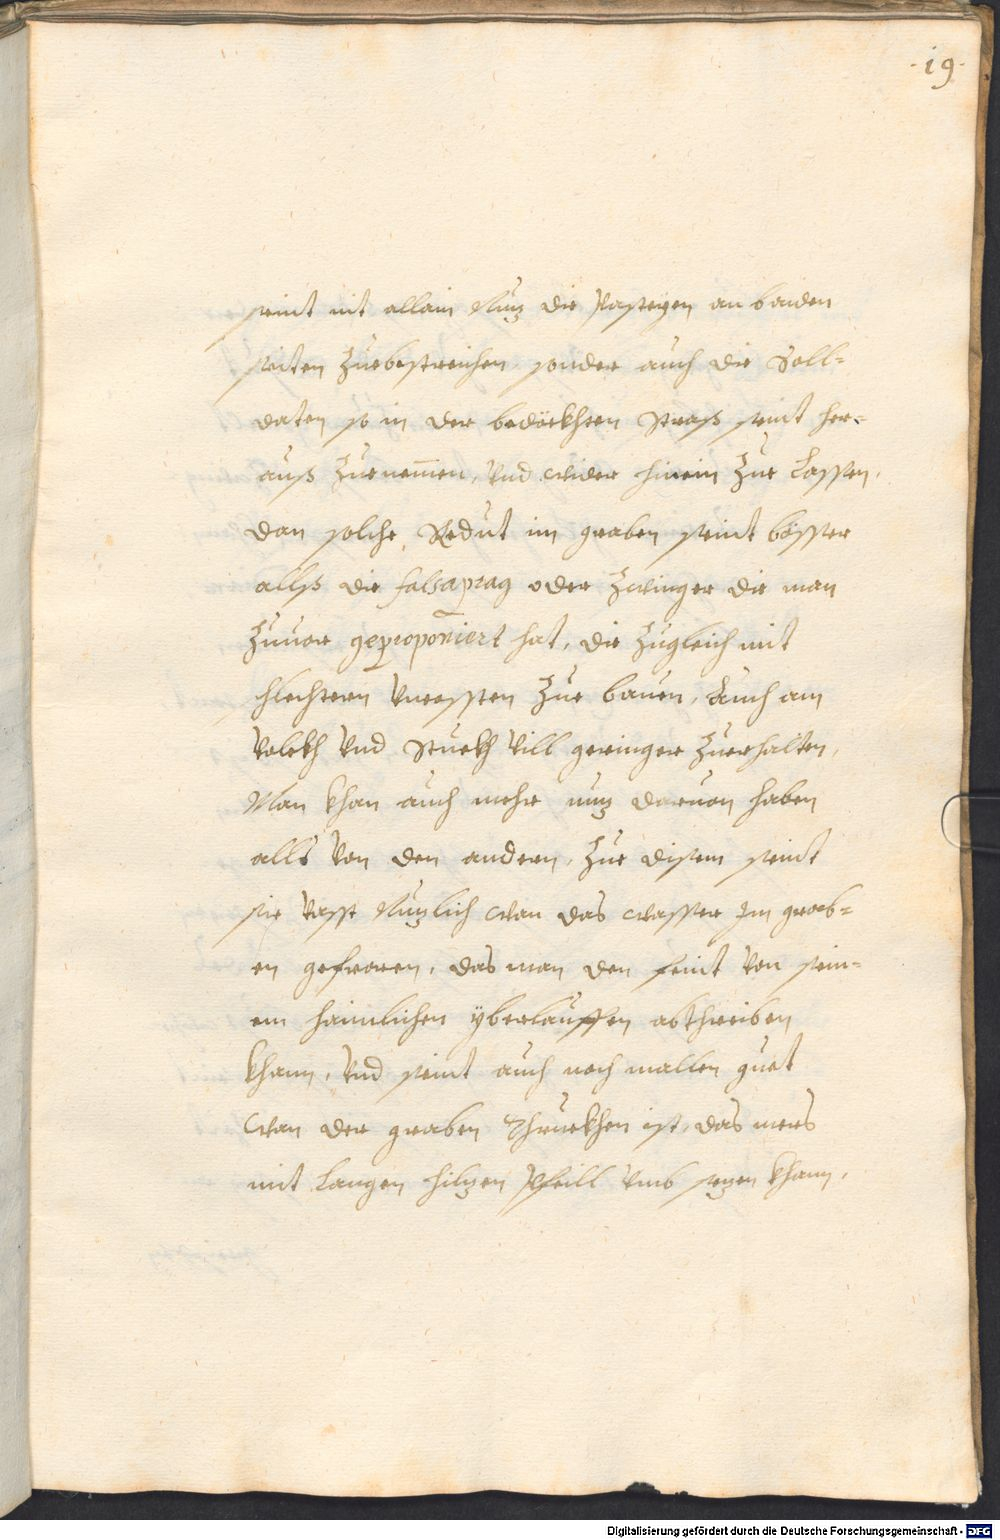 ·19·
seint nit allain Nuz die Pasteyen an baiden
seiten Zuebestreichen, sonder auch die Soll=
daten so in der bedäckhten Strass seint her=
auß Zuenemen, Vnd wider hinein Zue Lassen,
dan solche Redut im graben seint bösser
allß die falsaprag oder Zwinger die man
Zuuor geproponiert hat, die Zugleich mit
schlechtern Vncossten Zue bauen, Auch am
Volckh Vnd Stuckh Vill geringer Zuerhalten,
Man khan auch mehr nuz daruon haben
alls Von den andern, Zue disem seint
sie Vasst Nuzlich wan das wasser Im grab=
en gefroren, das man den feint Von sein=
em haimlichen ÿberlauffen abthreiben
khann, Vnd seint auch noch mallen guet
wan der graben Thruckhen ist, das mers
mit Langen hilzen Pfeill Vmb sezen khann,
Digitalisierung gefördert durch die Deutsche Forschungsgemeinschaft - DFG